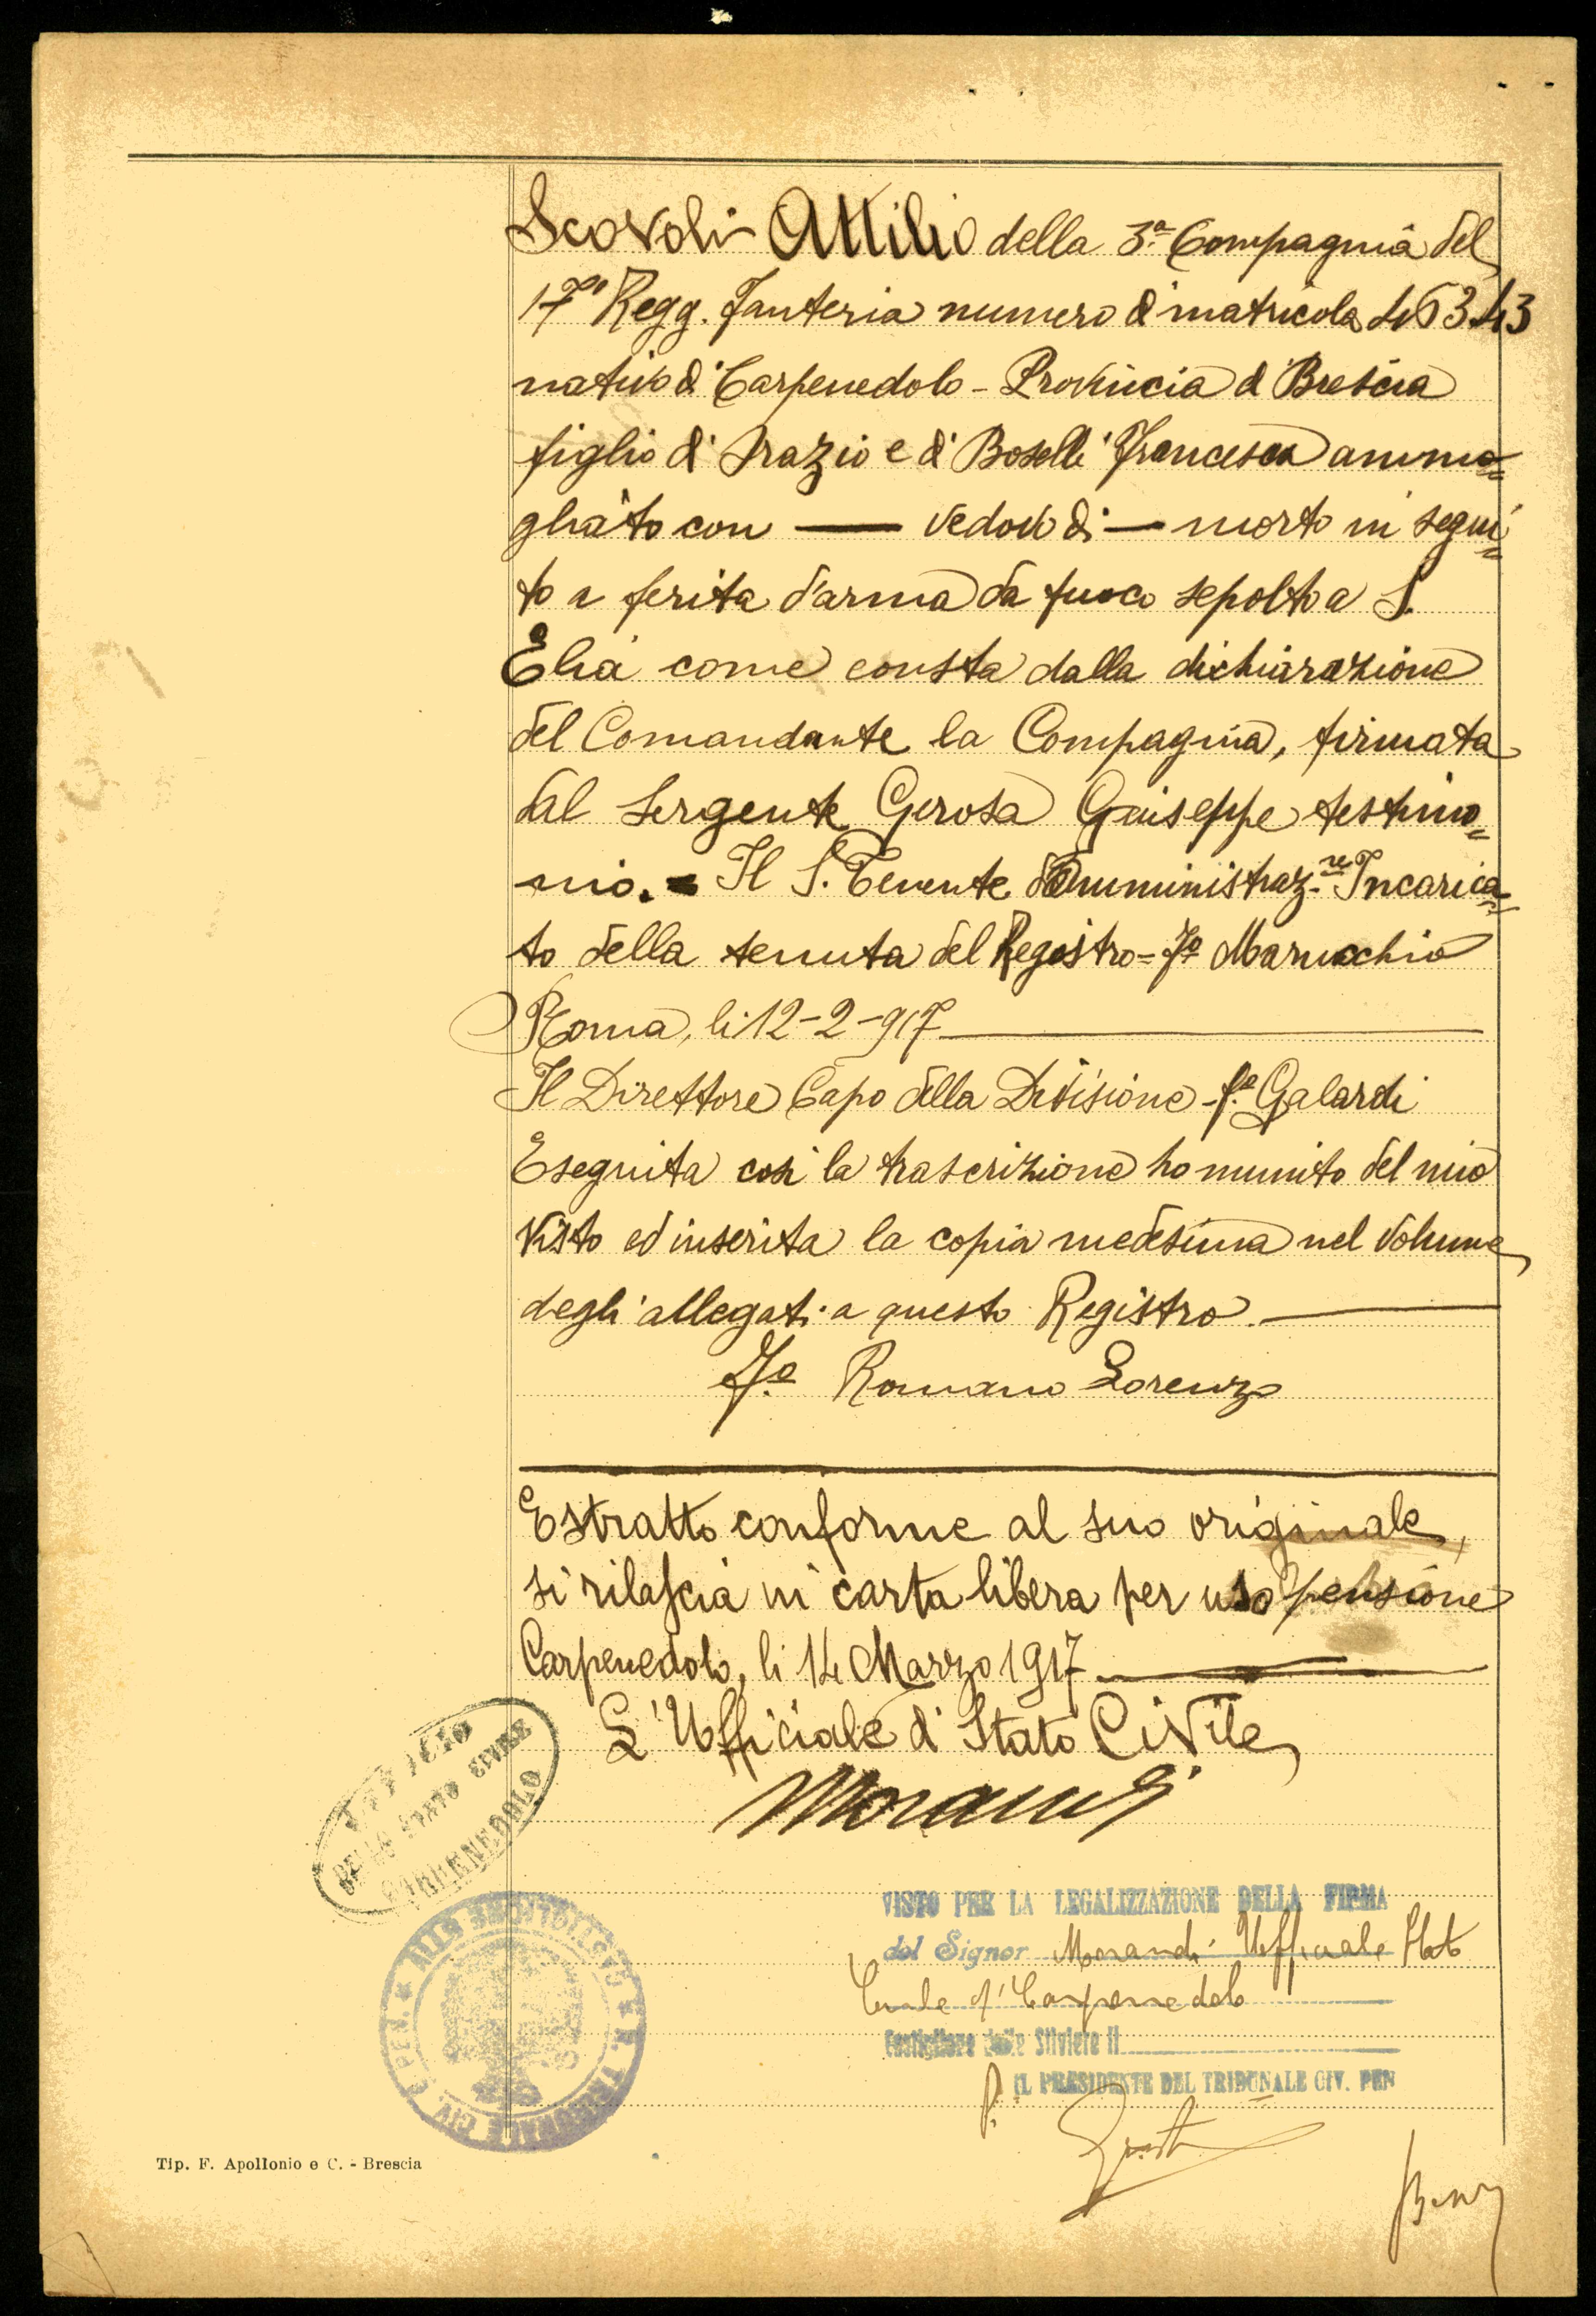 Scovoli Attilio della 3ª Compagnia del
17º Regg. Fanteria numero di matricola 46343
nativo di Carpenedolo - Provincia di Brescia
figlio di Orazio e di Boselli Francesca ammo=
gliato con — vedovo di — morto in segui=
to a ferita d'arma da fuoco sepolto a S.
Elia come consta dalla dichiarazione
del Comandante la Compagnia, firmata
dal Sergente Gerosa Giuseppe testimo=
nio. = Il S. Tenente d'Amministraz.ne Incarica=
to della tenuta del Registro = Fº Marucchio
Roma, li 12-2-917
Il Direttore Capo della Divisione - fº Galardi
Eseguita così la trascrizione ho munito del mio
visto ed inserita la copia medesima nel volume
degli allegati a questo Registro.
Fº Romano Lorenzo
Estratto conforme al suo originale,
si rilascia in carta libera per uso pensione
Carpenedolo, li 14 Marzo 1917
L'Ufficiale di Stato Civile
Morandi
UFFICIO
DELLO STATO CIVILE
CARPENEDOLO
VISTO PER LA LEGALIZZAZIONE DELLA FIRMA
del Signor Morandi Ufficiale Stato
Civile di Carpenedolo
Castiglione delle Stiviere li
p. IL PRESIDENTE DEL TRIBUNALE CIV. PEN
R. TRIBUNALE CIV. E PEN. * CASTIGLIONE DELLE STIV. *
Tip. F. Apollonio e C. - Brescia